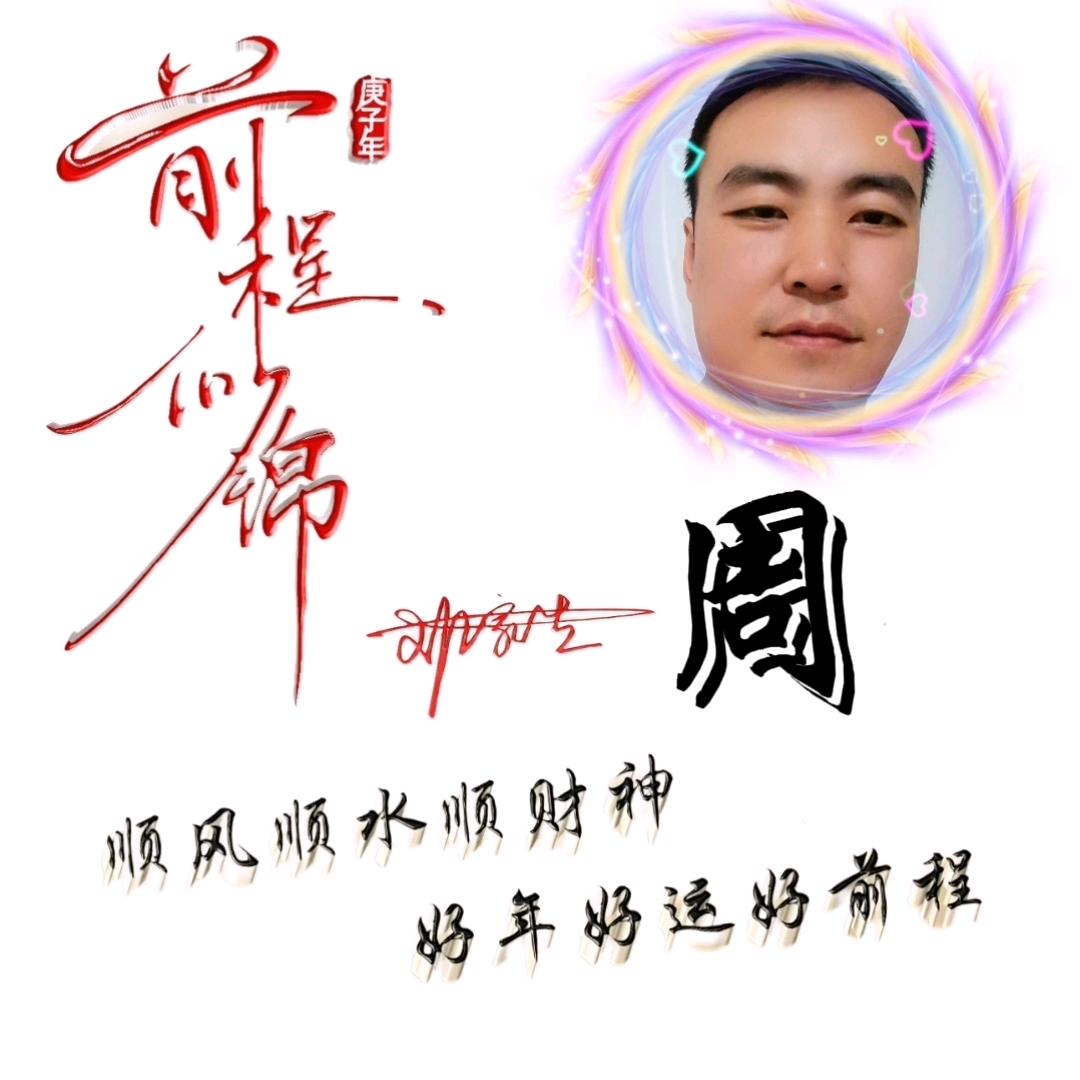 前程似锦
庚子年
周
顺风顺水顺财神
好年好运好前程